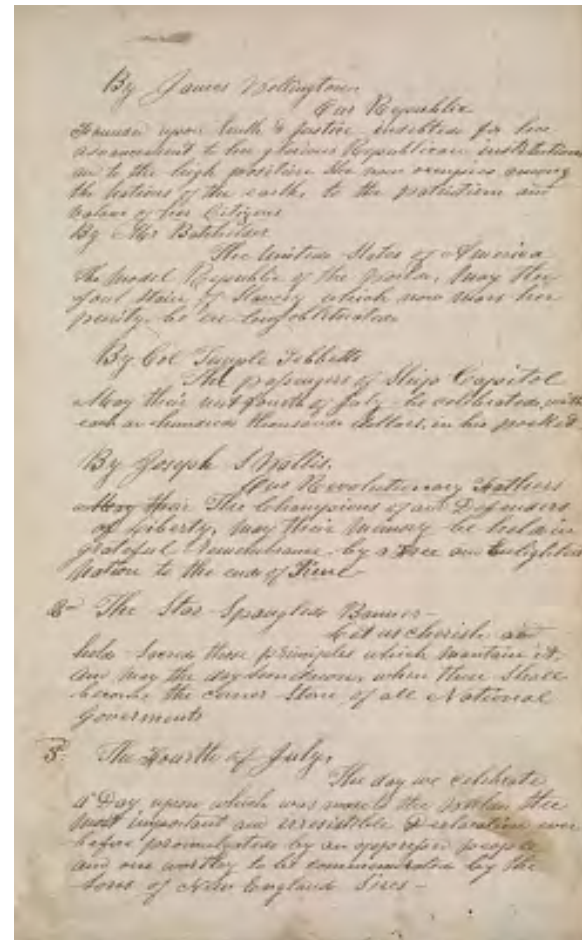 By James Nottingtown
Our Republic
Founded upon truth & Justice indebted for her
advancement to her glorious Republican institutions
and to the high position she now occupies among
the Nations of the earth, to the patriotism and
valour of her Citizens
By Mr Batchelder
The United States of America
The Model Republic of the World, May the
foul Stain of Slavery which now mars her
purity be ere long obliterated
By Col Temple Tebbetts
The passengers of Ship Capitol
May their next fourth of July be celebrated, with
each an hundred thousand dollars, in his pocket.
By Joseph S Wallis.
Our Revolutionary Fathers
The Champions of and Defenders
of Liberty, may their memory be held in
grateful Remembrance by a Free and Enlightend
Nation to the end of Time
The Star Spangled Banner
Let us cherish and
hold Sacred those principles which maintain it,
and may the day soon dawn, when these Shall
become the corner Stone of all National
Goverments
5 The Fourth of July,
The day we celebrate
a Day, upon which was made to the Nations the
most important and irresistible Declaration ever
before promulgated by an oppressed people
and one worthy to be commemorated by the
Sons of New England Sires